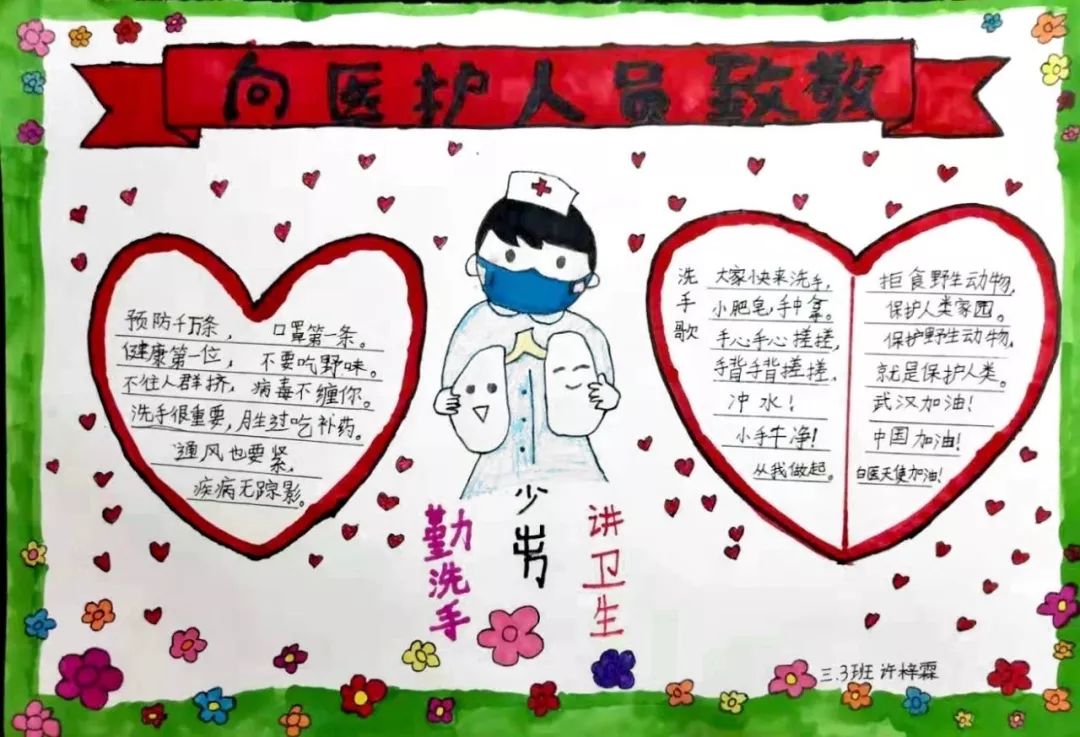 向医护人员致敬
预防千万条， 口罩第一条。
健康第一位， 不要吃野味。
不往人群挤， 病毒不缠你。
洗手很重要，胜过吃补药。
通风也要紧，
疾病无踪影。
洗手歌
大家快来洗手，
小肥皂，手中拿。
手心手心搓搓，
手背手背搓搓，
冲水！
小手干净！
从我做起。
拒食野生动物，
保护人类家园。
保护野生动物，
就是保护人类。
武汉加油！
中国加油！
白医天使加油！
勤洗手
少出门
讲卫生
三.3班 许梓霖